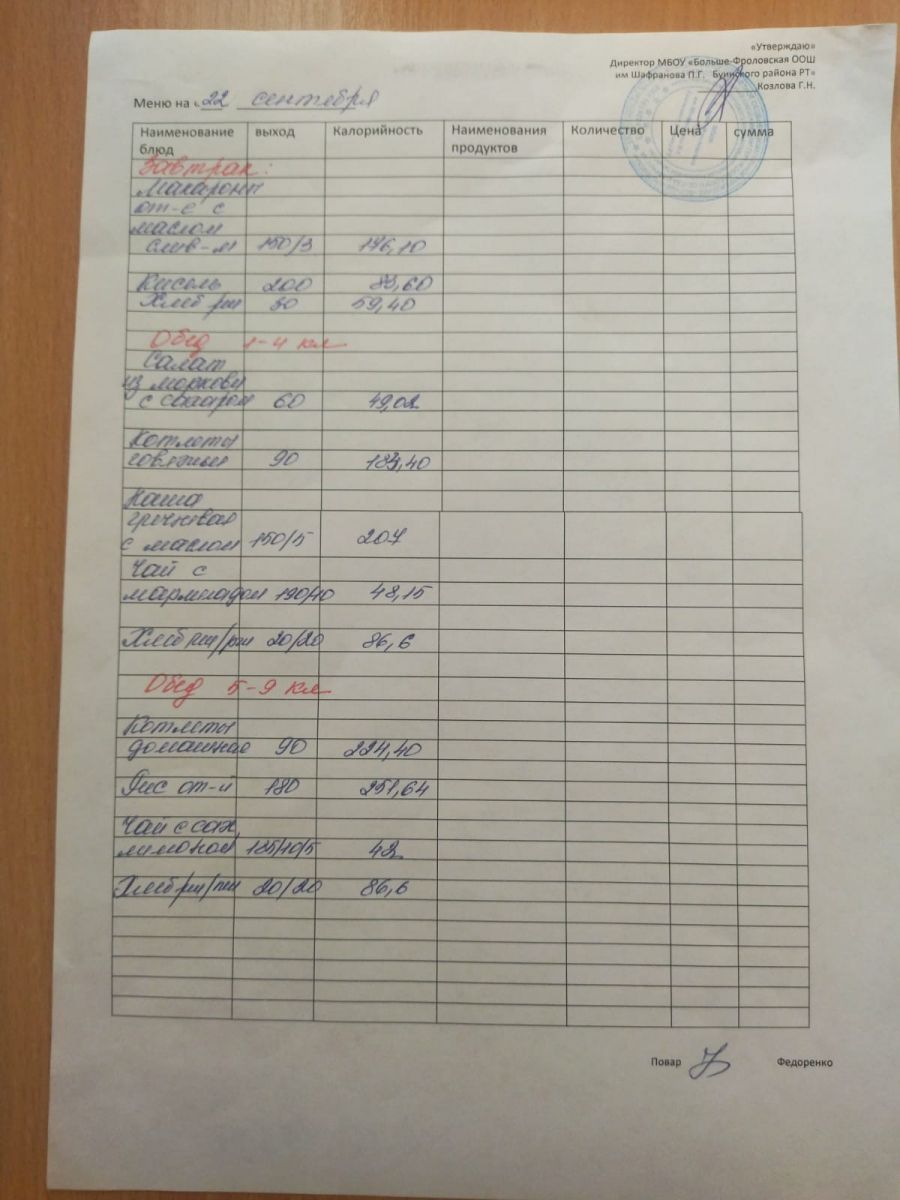 «Утверждаю»
Директор МБОУ «Больше-Фроловская ООШ
им Шафранова П.Г. Буинского района РТ»
Козлова Г.Н.
Меню на «22 сентября
Наименование блюд выход Калорийность Наименования продуктов Количество Цена сумма
Завтрак:
Макароны
от-е с
маслом
слив-м 150/3 176,10
Кисель 200 83,60
Хлеб рж 30 59,40
Обед 1-4 кл
Салат
из моркови
с сахаром 60 49,02
Котлеты
говяжьи 90 183,40
Каша
гречневая
с маслом 150/5 207
Чай с
мармеладом 190/10 48,15
Хлеб пш/рж 20/20 86,6
Обед 5-9 кл
Котлеты
домашние 90 224,40
Рис от-й 180 251,64
Чай с сах,
лимоном 185/10/5 42
Хлеб рж/пш 20/20 86,6
Повар Федоренко